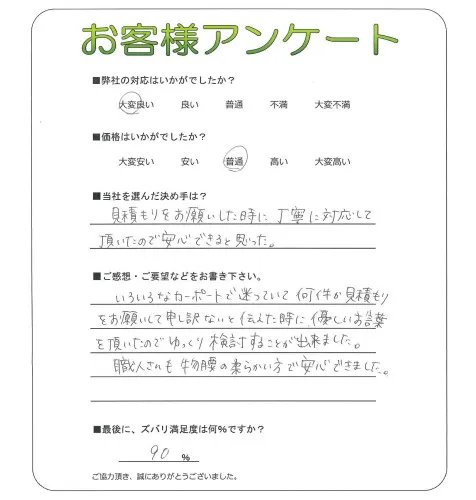 お客様アンケート
■弊社の対応はいかがでしたか？
大変良い 良い 普通 不満 大変不満
■価格はいかがでしたか？
大変安い 安い 普通 高い 大変高い
■当社を選んだ決め手は？
見積もりをお願いした時に丁寧に対応して
頂いたので安心できると思った。
■ご感想・ご要望などをお書き下さい。
いろいろなカーポートで迷っていて何件か見積もり
をお願いして申し訳ないと伝えた時に優しいお言葉
を頂いたのでゆっくり検討することが出来ました。
職人さんも物腰の柔らかい方で安心できました。
■最後に、ズバリ満足度は何%ですか？
90 %
ご協力頂き、誠にありがとうございました。